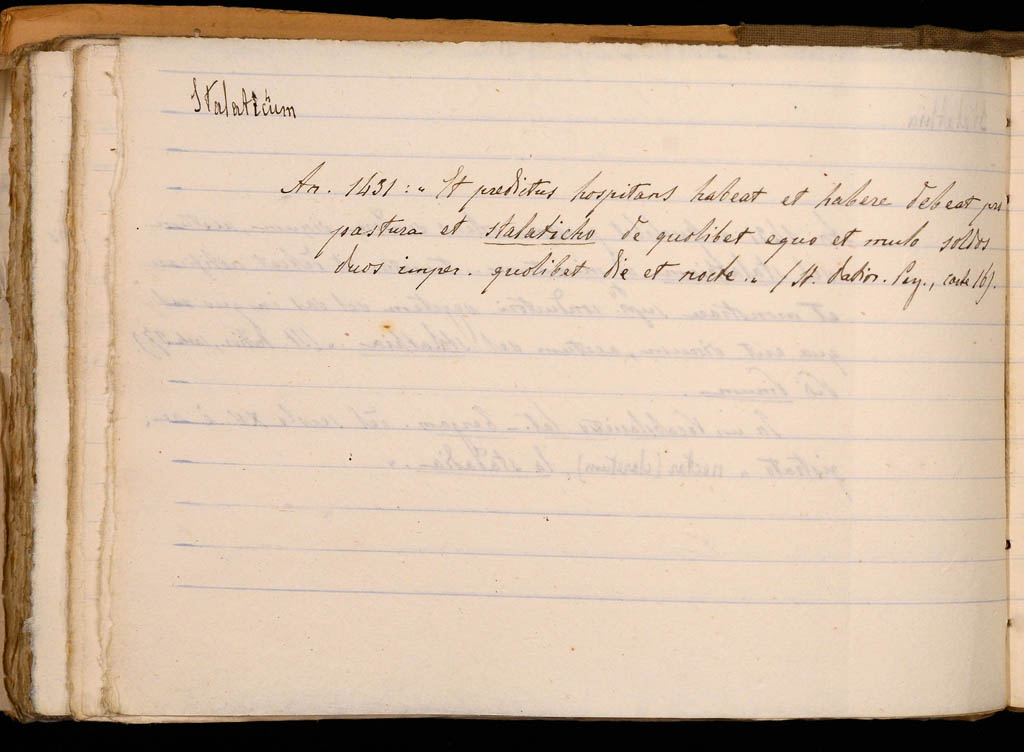 Stalaticum
An. 1431: „ Et predictus hospitans habeat et habere debeat pro
pastura et stalaticho de quolibet equo et mulo soldos
duos imper. quolibet die et nocte. „ (St. datior. , carte 16).